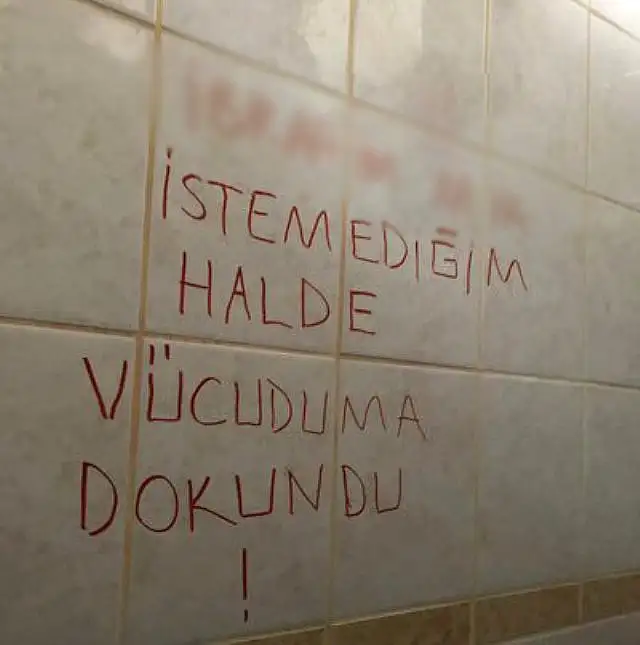 İSTEMEDIĞİM
HALDE
VÜCUDUMA
DOKUNDU
!